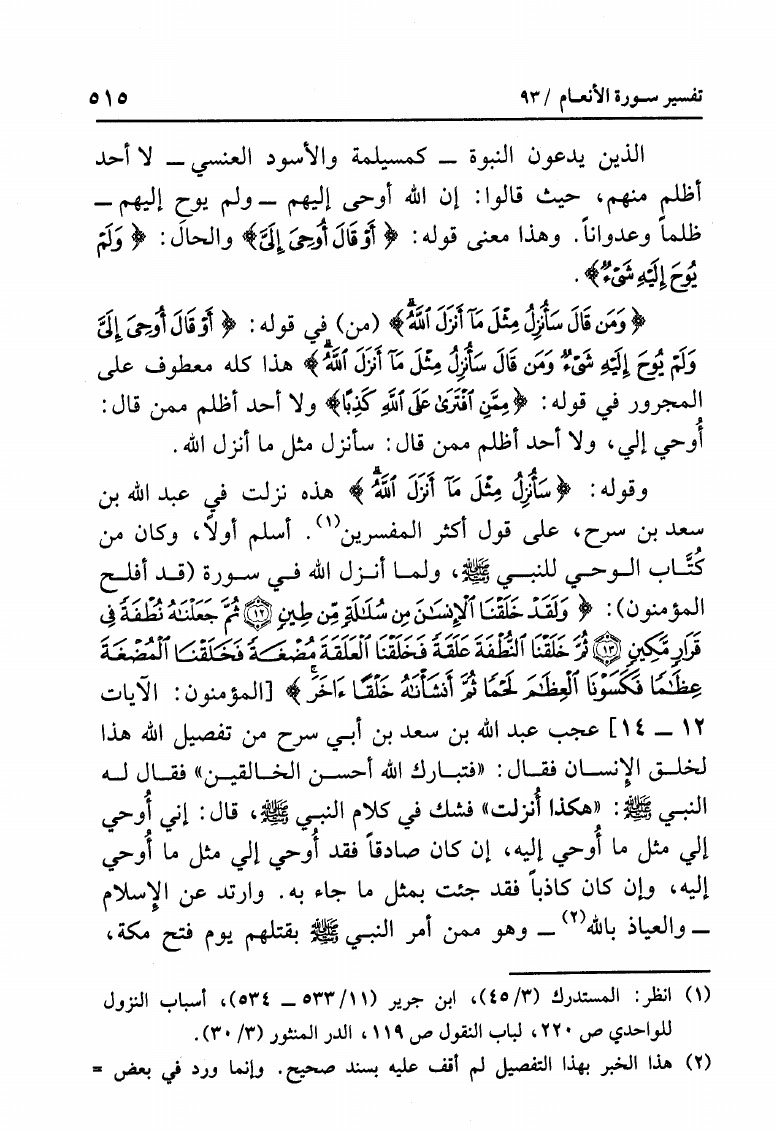 تفسير سورة الأنعام / ٩٣ ٥١٥
الذين يدعون النبوة ــ كمسيلمة والأسود العنسي ــ لا أحد
أظلم منهم، حيث قالوا: إن الله أوحى إليهم ــ ولم يوح إليهم ــ
ظلماً وعدواناً. وهذا معنى قوله: ﴿ أَوْ قَالَ أُوحِىَ إِلَىَّ﴾ والحال: ﴿ وَلَمْ
يُوحَ إِلَيْهِ شَىْءٌ﴾.
﴿ وَمَن قَالَ سَأُنزِلُ مِثْلَ مَآ أَنزَلَ ٱللَّهُۗ﴾ (من) في قوله: ﴿ أَوْ قَالَ أُوحِىَ إِلَىَّ
وَلَمْ يُوحَ إِلَيْهِ شَىْءٌ وَمَن قَالَ سَأُنزِلُ مِثْلَ مَآ أَنزَلَ ٱللَّهُۗ ﴾ هذا كله معطوف على
المجرور في قوله: ﴿ مِمَّنِ ٱفْتَرَىٰ عَلَى ٱللَّهِ كَذِبًا﴾ ولا أحد أظلم ممن قال:
أُوحي إلي، ولا أحد أظلم ممن قال: سأنزل مثل ما أنزل الله.
وقوله: ﴿ سَأُنزِلُ مِثْلَ مَآ أَنزَلَ ٱللَّهُۗ ﴾ هذه نزلت في عبد الله بن
سعد بن سرح، على قول أكثر المفسرين(١). أسلم أولاً، وكان من
كُتَّاب الوحي للنبي ﷺ، ولما أنزل الله في سورة (قد أفلح
المؤمنون): ﴿ وَلَقَدْ خَلَقْنَا ٱلْإِنسَٰنَ مِن سُلَٰلَةٍ مِّن طِينٍ ۝١٢ ثُمَّ جَعَلْنَٰهُ نُطْفَةً فِى
قَرَارٍ مَّكِينٍ ۝١٣ ثُمَّ خَلَقْنَا ٱلنُّطْفَةَ عَلَقَةً فَخَلَقْنَا ٱلْعَلَقَةَ مُضْغَةً فَخَلَقْنَا ٱلْمُضْغَةَ
عِظَٰمًا فَكَسَوْنَا ٱلْعِظَٰمَ لَحْمًا ثُمَّ أَنشَأْنَٰهُ خَلْقًا ءَاخَرَۚ ﴾ [المؤمنون: الآيات
١٢ ــ ١٤] عجب عبد الله بن سعد بن أبي سرح من تفصيل الله هذا
لخلق الإنسان فقال: «فتبارك الله أحسن الخالقين» فقال له
النبي ﷺ: «هكذا أُنزلت» فشك في كلام النبي ﷺ، قال: إني أُوحي
إلي مثل ما أُوحي إليه، إن كان صادقاً فقد أُوحي إلي مثل ما أُوحي
إليه، وإن كان كاذباً فقد جئت بمثل ما جاء به. وارتد عن الإسلام
ــ والعياذ بالله(٢) ــ وهو ممن أمر النبي ﷺ بقتلهم يوم فتح مكة،
(١) انظر: المستدرك (٤٥/٣)، ابن جرير (٥٣٣/١١ ــ ٥٣٤)، أسباب النزول
للواحدي ص ٢٢٠، لباب النقول ص ١١٩، الدر المنثور (٣٠/٣).
(٢) هذا الخبر بهذا التفصيل لم أقف عليه بسند صحيح. وإنما ورد في بعض =